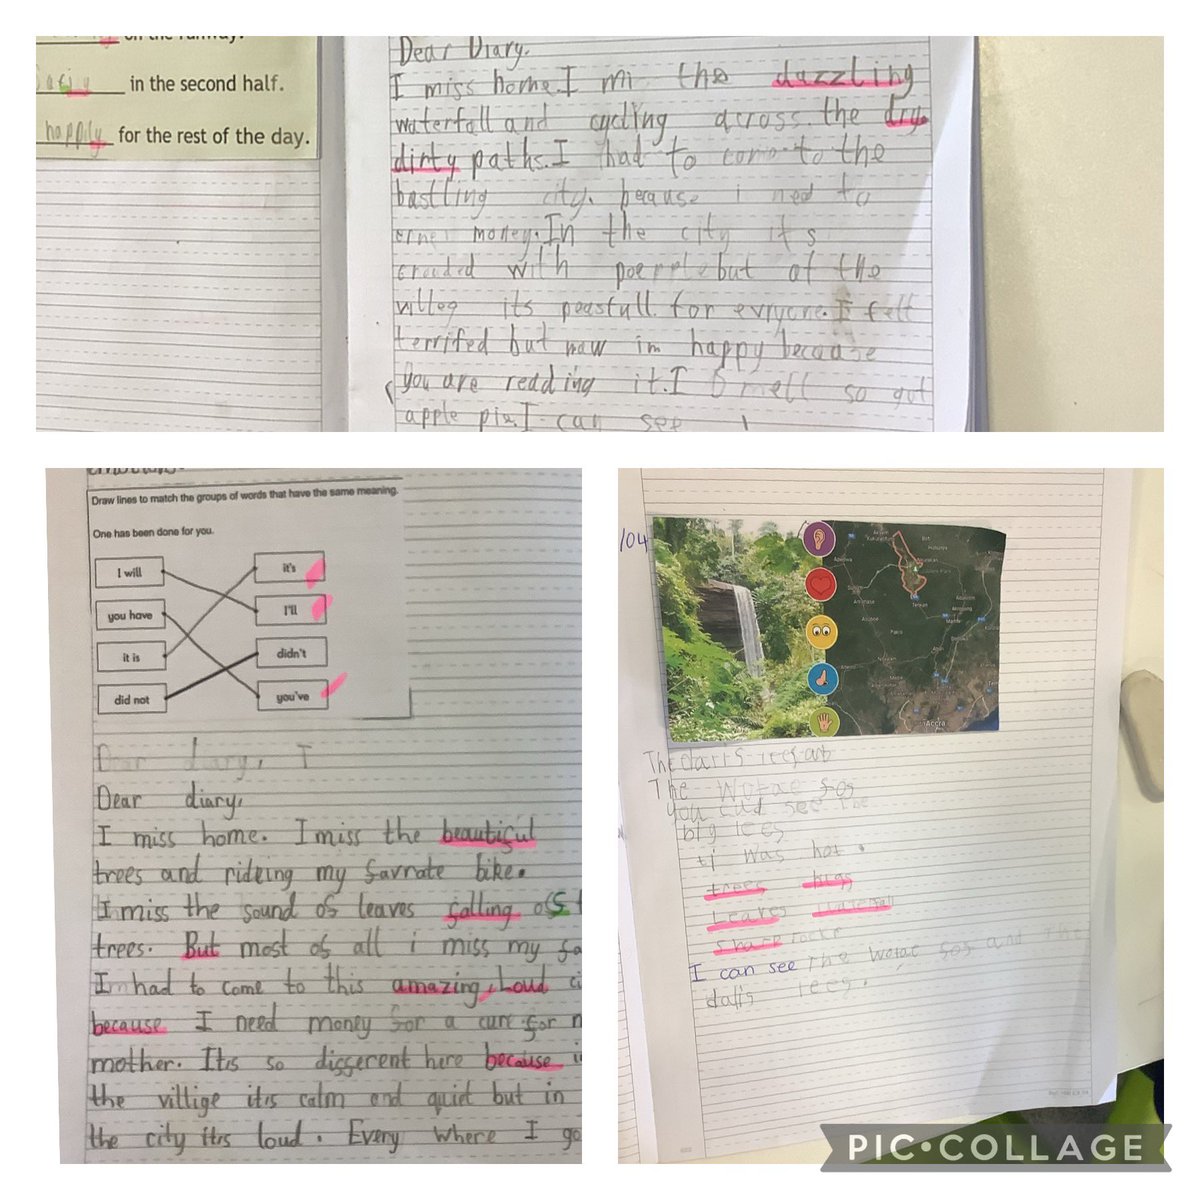 on the runway.
in the second half.
happily for the rest of the day.
Dear Diary,
I miss home. I mi the dazzling
waterfall and cycling across the dry
dirty paths. I had to come to the
bastling city. because i need to
erne money. In the city its
crouded with poerple but at the
villeg its peasfull for evryone. I felt
terrifed but now im happy because
you are redding it. I smell so
apple pie. I can see
Draw lines to match the groups of words that have the same meaning.
One has been done for you.
I will it's
you have I'll
it is didn't
did not you've
Dear diary, I
Dear diary,
I miss home. I miss the beautiful
trees and rideing my favrate bike.
I miss the sound of leaves falling off
trees. But most of all i miss my
I had to come to this amazing, Loud
because I need money for a cure for
mother. Itis so different here because
the villige itis calm and quiet but in
the city itis loud. Every where I go
/04
Accra
The
The Watae fos
you cud see the
big tees
ti was hot.
trees
Leaves waterfall
sharp rocks
I can see The watae fos and the
tees.
PIC•COLLAGE